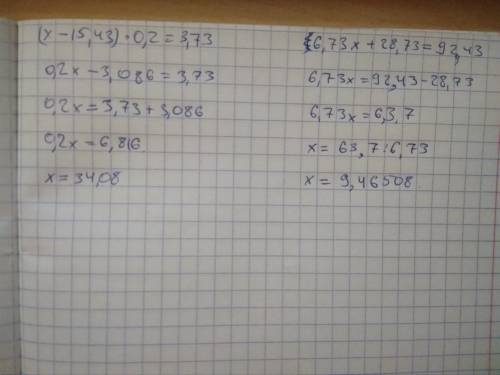 (x-15,43)·0,2=3,73
0,2x-3,086=3,73
0,2x=3,73+3,086
0,2x=6,816
x=34,08
6,73x+28,73=92,43
6,73x=92,43-28,73
6,73x=6,3,7
x=63,7:6,73
x=9,46508